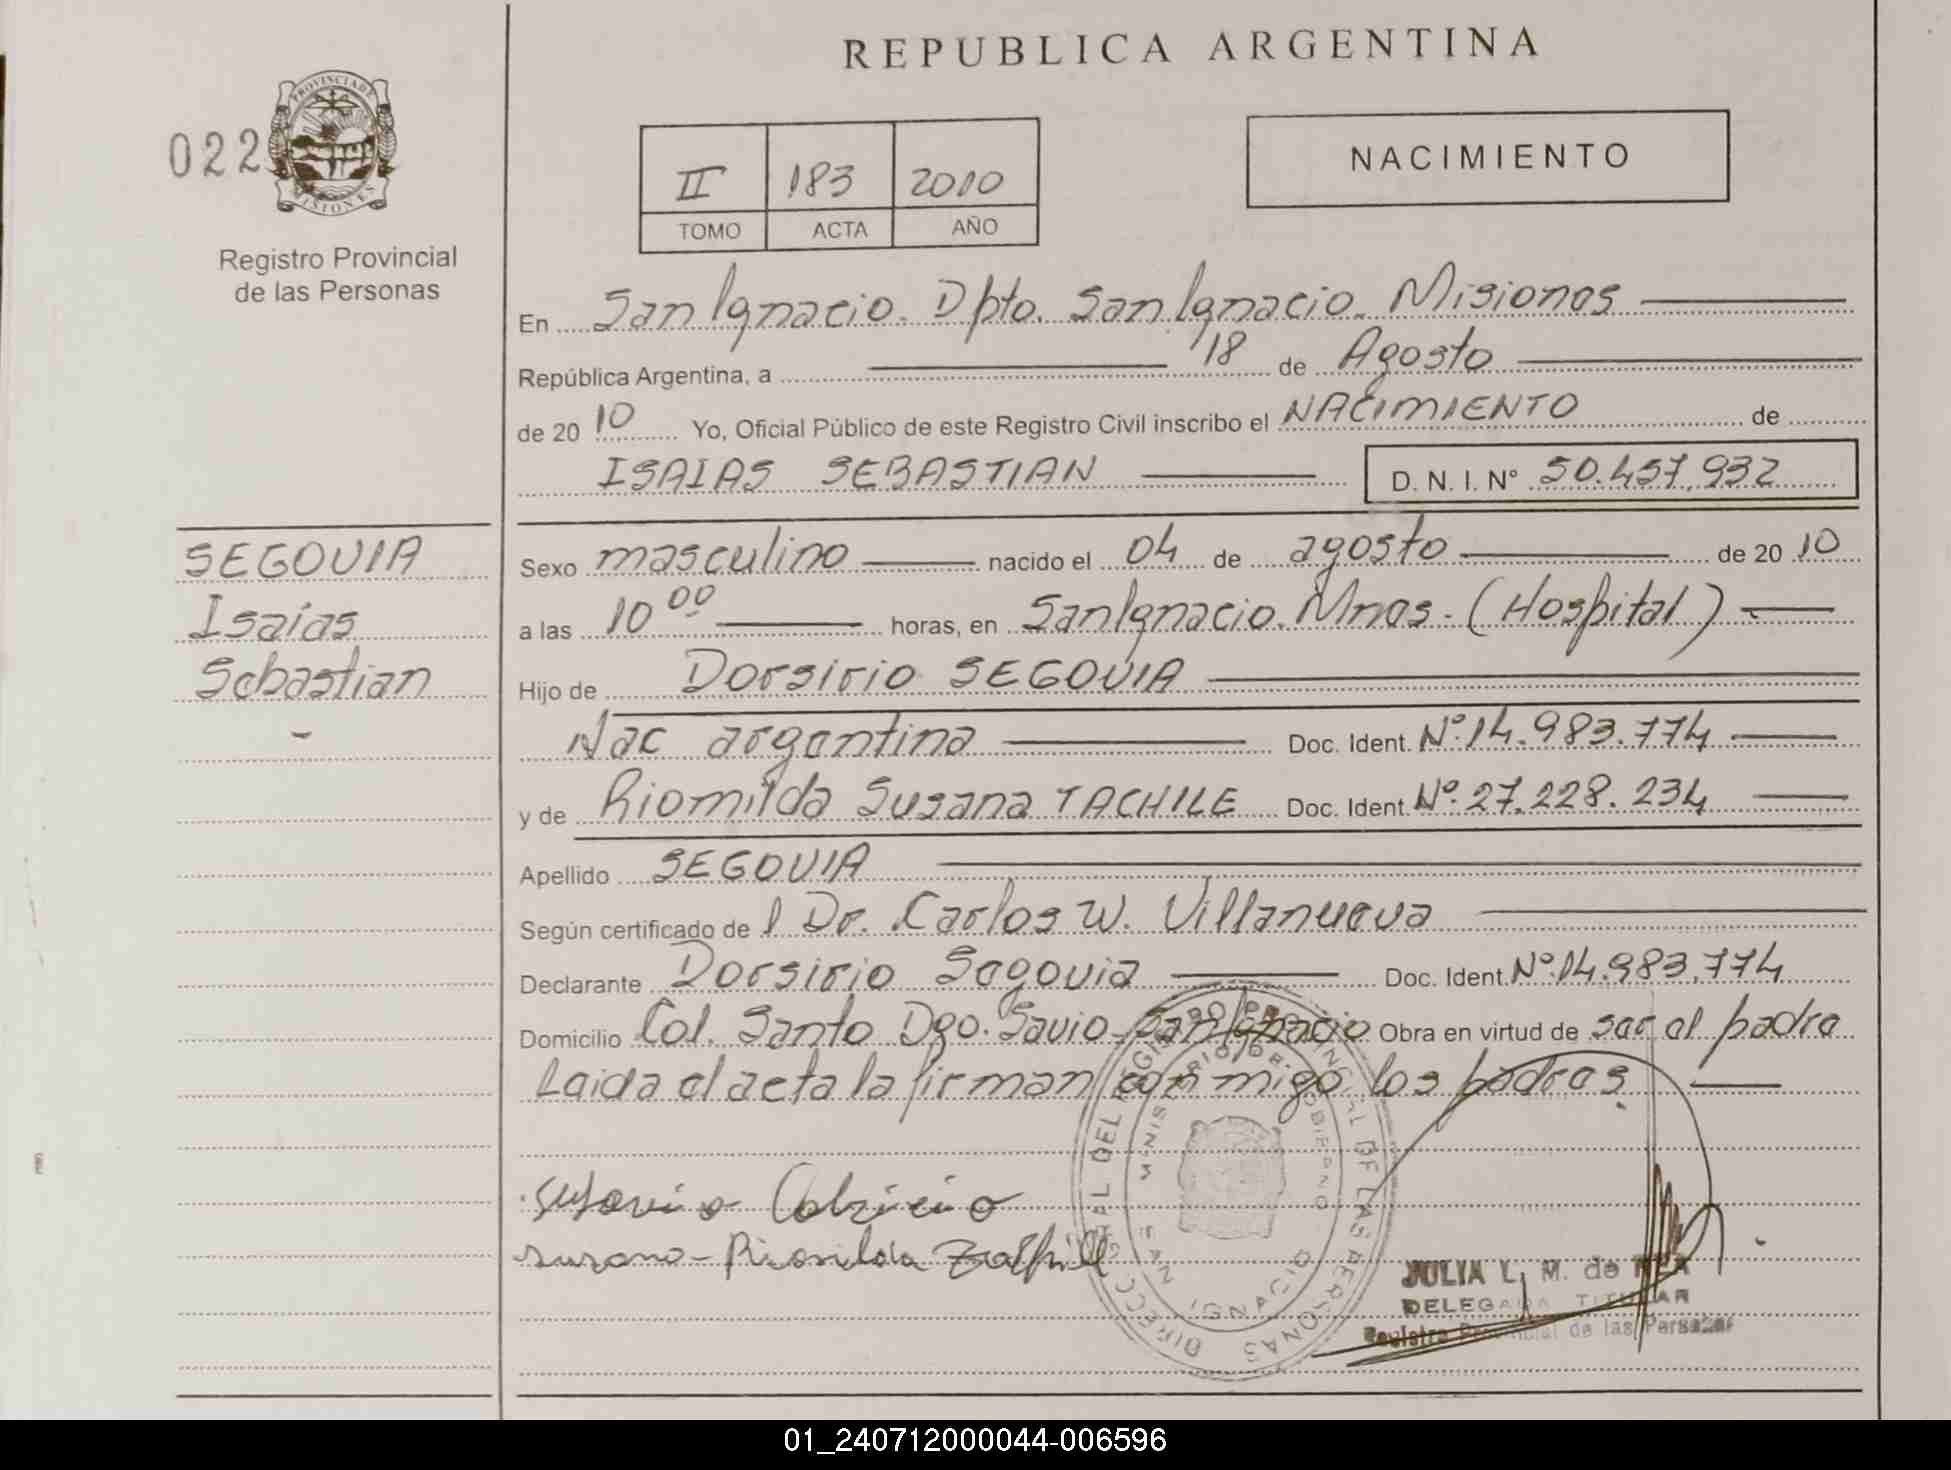 REPUBLICA ARGENTINA
022
PROVINCIA DE MISIONES
Registro Provincial
de las Personas
II 183 2010
TOMO ACTA AÑO
NACIMIENTO
En San Ignacio. Dpto. San Ignacio. Misiones
República Argentina, a 18 de Agosto
de 20 10 Yo, Oficial Público de este Registro Civil inscribo el NACIMIENTO de
ISAIAS SEBASTIAN D. N. I. Nº 50.457.932
SEGOVIA
Isaías
Sebastian
Sexo masculino nacido el 04 de agosto de 20 10
a las 10 00 horas, en San Ignacio. Mnes. (Hospital)
Hijo de Dorsirio SEGOVIA
Nac argentina Doc. Ident. Nº 14.983.774
y de Riomilda Susana TACHILE Doc. Ident. Nº 27.228.234
Apellido SEGOVIA
Según certificado de l Dr. Carlos W. Villanueva
Declarante Dorsirio Segovia Doc. Ident. Nº 14.983.774
Domicilio Col. Santo Dgo. Savio - San Ignacio Obra en virtud de ser el padre
Leida el acta la firman conmigo los padres.
DIRECC GRAL DEL REGISTRO PROVINCIAL DE LAS PERSONAS
MINISTERIO GOBIERNO
SAN IGNACIO
JULIA L. M. de
DELEGADA TITULAR
Registro Provincial de las Personas
01_240712000044-006596